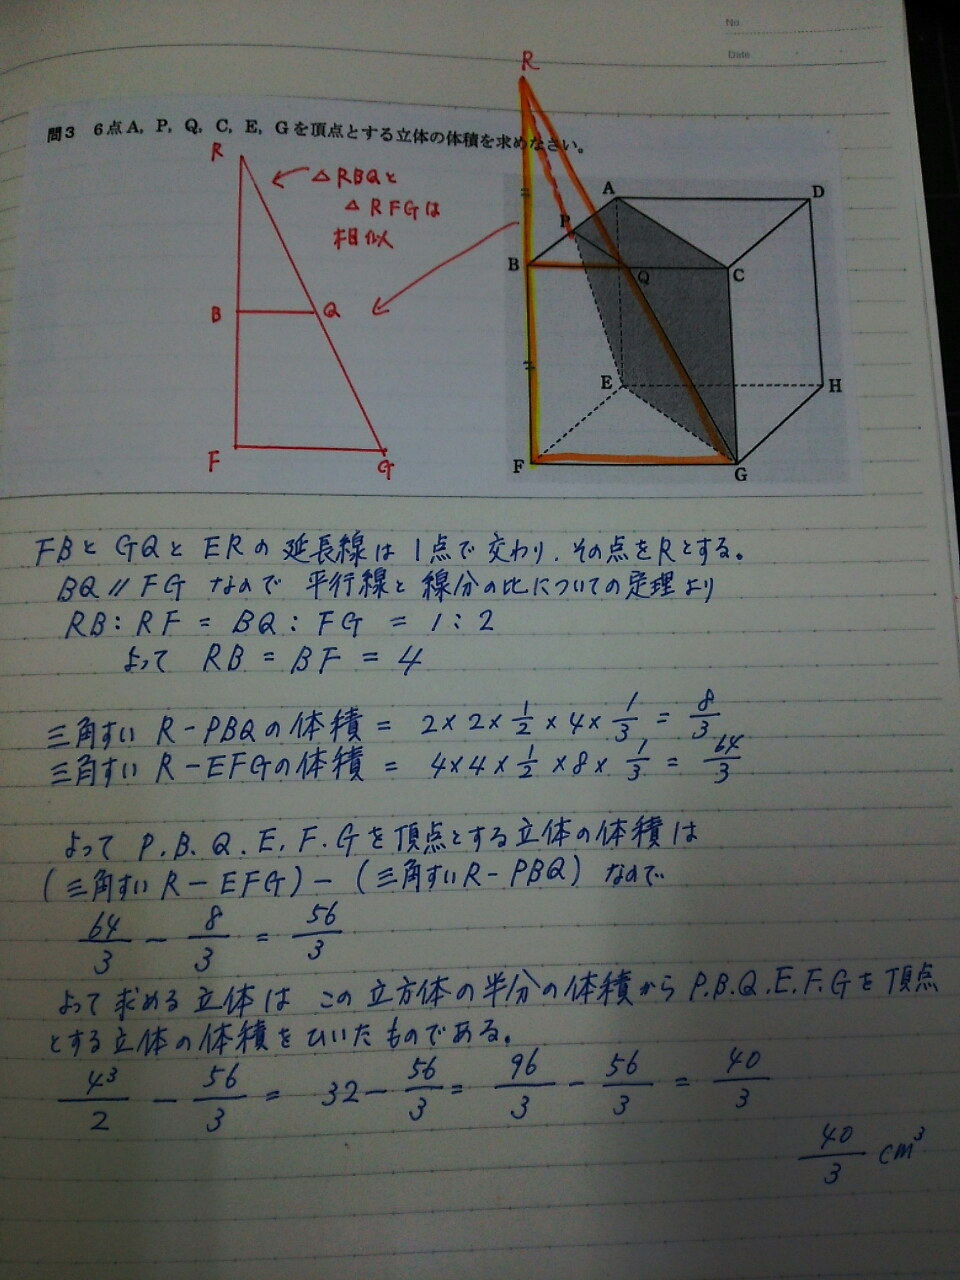 No.
Date
R
問3 6点A, P, Q, C, E, Gを頂点とする立体の体積を求めなさい。
R
△RBQと
△RFGは
相似
A
D
P
B
Q
C
B
Q
E
H
F
G
F
G
FBとGQとERの延長線は1点で交わり、その点をRとする。
BQ//FG なので 平行線と線分の比についての定理より
RB:RF = BQ:FG = 1:2
よって RB = BF = 4
三角すい R-PBQの体積 = 2×2×1/2×4×1/3 = 8/3
三角すい R-EFGの体積 = 4×4×1/2×8×1/3 = 64/3
よって P.B.Q.E.F.Gを頂点とする立体の体積は
(三角すいR-EFG)-(三角すいR-PBQ) なので
64/3 - 8/3 = 56/3
よって求める立体は この立方体の半分の体積から P.B.Q.E.F.Gを頂点
とする立体の体積をひいたものである。
4³/2 - 56/3 = 32 - 56/3 = 96/3 - 56/3 = 40/3
40/3 cm³